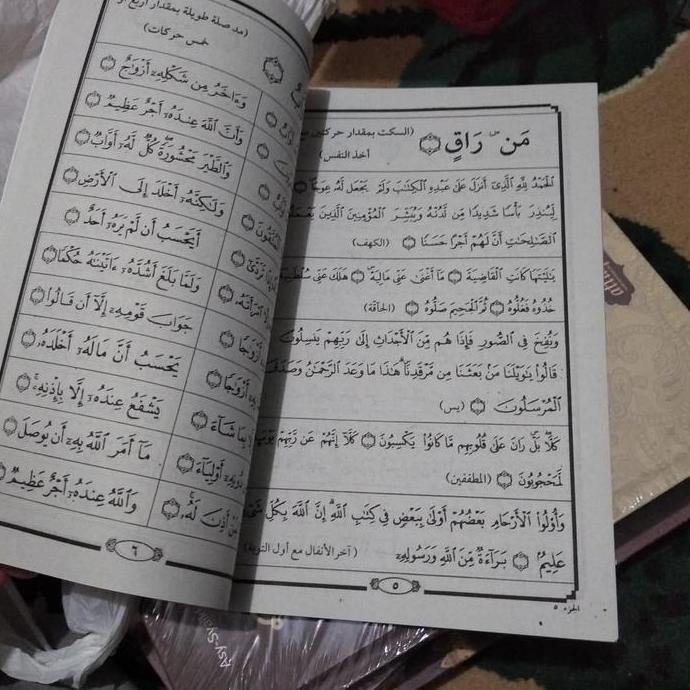 مَن ۜ رَاقٍ (السكت بمقدار حركتين مع
أخذ النفس)
ٱلْحَمْدُ لِلَّهِ ٱلَّذِىٓ أَنزَلَ عَلَىٰ عَبْدِهِ ٱلْكِتَـٰبَ وَلَمْ يَجْعَل لَّهُۥ عِوَجَا
لِّيُنذِرَ بَأْسًا شَدِيدًا مِّن لَّدُنْهُ وَيُبَشِّرَ ٱلْمُؤْمِنِينَ ٱلَّذِينَ
ٱلصَّـٰلِحَـٰتِ أَنَّ لَهُمْ أَجْرًا حَسَنًا (الكهف)
يَـٰلَيْتَهَا كَانَتِ ٱلْقَاضِيَةَ مَآ أَغْنَىٰ عَنِّى مَالِيَهْ ۜ هَلَكَ عَنِّى
خُذُوهُ فَغُلُّوهُ ثُمَّ ٱلْجَحِيمَ صَلُّوهُ (الحاقة)
وَنُفِخَ فِى ٱلصُّورِ فَإِذَا هُم مِّنَ ٱلْأَجْدَاثِ إِلَىٰ رَبِّهِمْ يَنسِلُونَ
قَالُوا۟ يَـٰوَيْلَنَا مَنۢ بَعَثَنَا مِن مَّرْقَدِنَا ۜ هَـٰذَا مَا وَعَدَ ٱلرَّحْمَـٰنُ وَصَدَقَ
ٱلْمُرْسَلُونَ (يس)
كَلَّا بَلْ ۜ رَانَ عَلَىٰ قُلُوبِهِم مَّا كَانُوا۟ يَكْسِبُونَ كَلَّآ إِنَّهُمْ عَن رَّبِّهِمْ
لَّمَحْجُوبُونَ (المطففين)
وَأُو۟لُوا۟ ٱلْأَرْحَامِ بَعْضُهُمْ أَوْلَىٰ بِبَعْضٍ فِى كِتَـٰبِ ٱللَّهِ ۗ إِنَّ ٱللَّهَ بِكُلِّ
عَلِيمٌۢ بَرَآءَةٌ مِّنَ ٱللَّهِ وَرَسُولِهِۦٓ (آخر الأنفال مع أول التوبة)
٥
الجزء ٥
(مد صلة طويلة بمقدار أربع أو
خمس حركات)
وَءَاخَرُ مِن شَكْلِهِۦٓ أَزْوَٰجٌ
وَأَنَّ ٱللَّهَ عِندَهُۥٓ أَجْرٌ عَظِيمٌ
وَٱلطَّيْرَ مَحْشُورَةً ۖ كُلٌّ لَّهُۥٓ أَوَّابٌ
وَلَـٰكِنَّهُۥٓ أَخْلَدَ إِلَى ٱلْأَرْضِ
أَيَحْسَبُ أَن لَّمْ يَرَهُۥٓ أَحَدٌ
وَلَمَّا بَلَغَ أَشُدَّهُۥٓ ءَاتَيْنَـٰهُ حُكْمًا
جَوَابَ قَوْمِهِۦٓ إِلَّآ أَن قَالُوا۟
يَحْسَبُ أَنَّ مَالَهُۥٓ أَخْلَدَهُۥ
يَشْفَعُ عِندَهُۥٓ إِلَّا بِإِذْنِهِۦ
مَآ أَمَرَ ٱللَّهُ بِهِۦٓ أَن يُوصَلَ
وَٱللَّهُ عِندَهُۥٓ أَجْرٌ عَظِيمٌ
٦